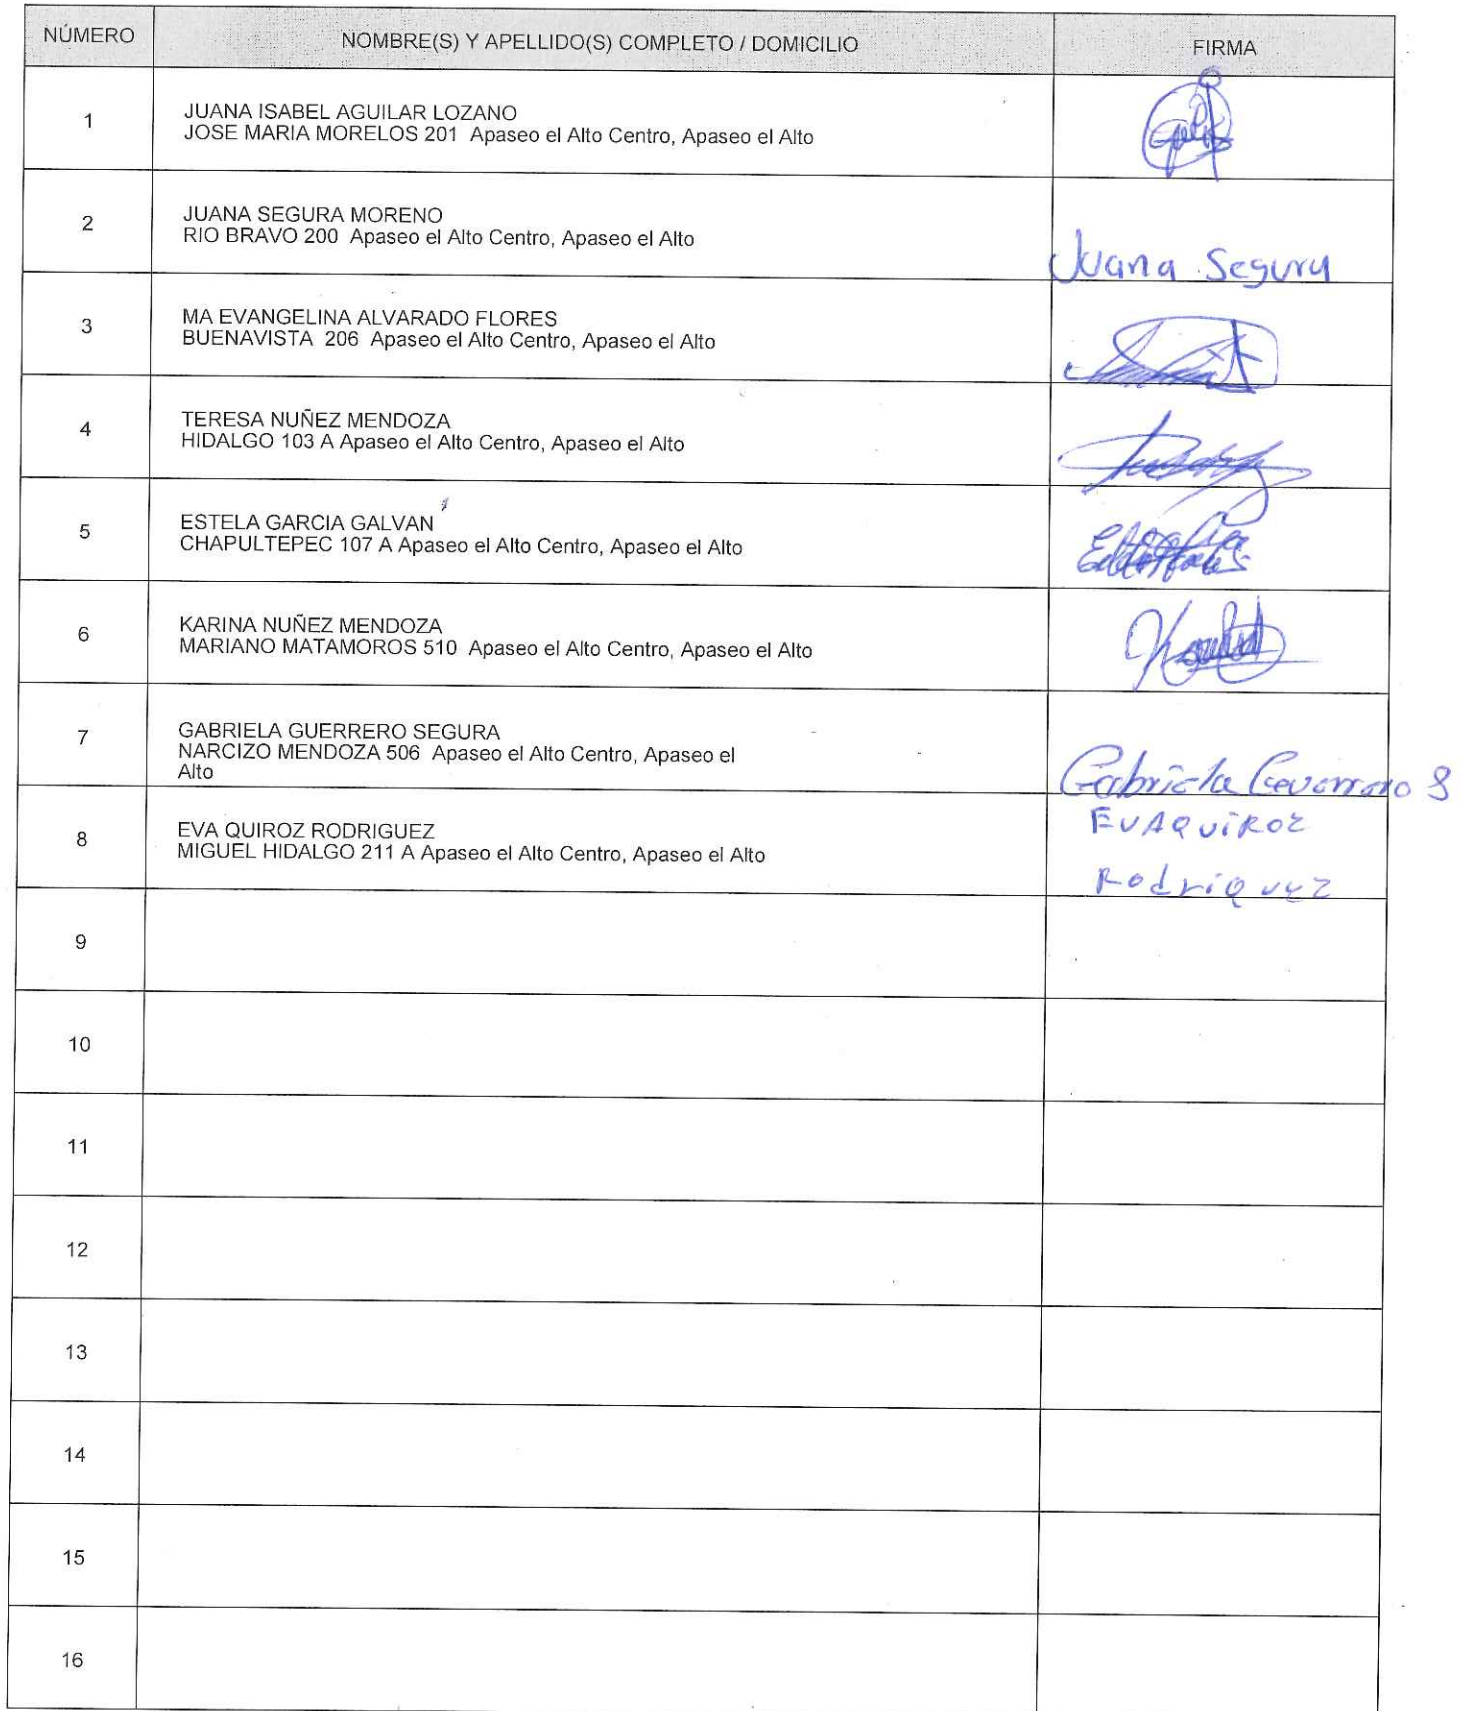 NÚMERO NOMBRE(S) Y APELLIDO(S) COMPLETO / DOMICILIO FIRMA
1 JUANA ISABEL AGUILAR LOZANO
JOSE MARIA MORELOS 201 Apaseo el Alto Centro, Apaseo el Alto
2 JUANA SEGURA MORENO
RIO BRAVO 200 Apaseo el Alto Centro, Apaseo el Alto
Juana Segura
3 MA EVANGELINA ALVARADO FLORES
BUENAVISTA 206 Apaseo el Alto Centro, Apaseo el Alto
4 TERESA NUÑEZ MENDOZA
HIDALGO 103 A Apaseo el Alto Centro, Apaseo el Alto
5 ESTELA GARCIA GALVAN
CHAPULTEPEC 107 A Apaseo el Alto Centro, Apaseo el Alto
6 KARINA NUÑEZ MENDOZA
MARIANO MATAMOROS 510 Apaseo el Alto Centro, Apaseo el Alto
7 GABRIELA GUERRERO SEGURA
NARCIZO MENDOZA 506 Apaseo el Alto Centro, Apaseo el
Alto
Gabriela Guerrero S
8 EVA QUIROZ RODRIGUEZ
MIGUEL HIDALGO 211 A Apaseo el Alto Centro, Apaseo el Alto
EVA QUIROZ
Rodriquez
9
10
11
12
13
14
15
16